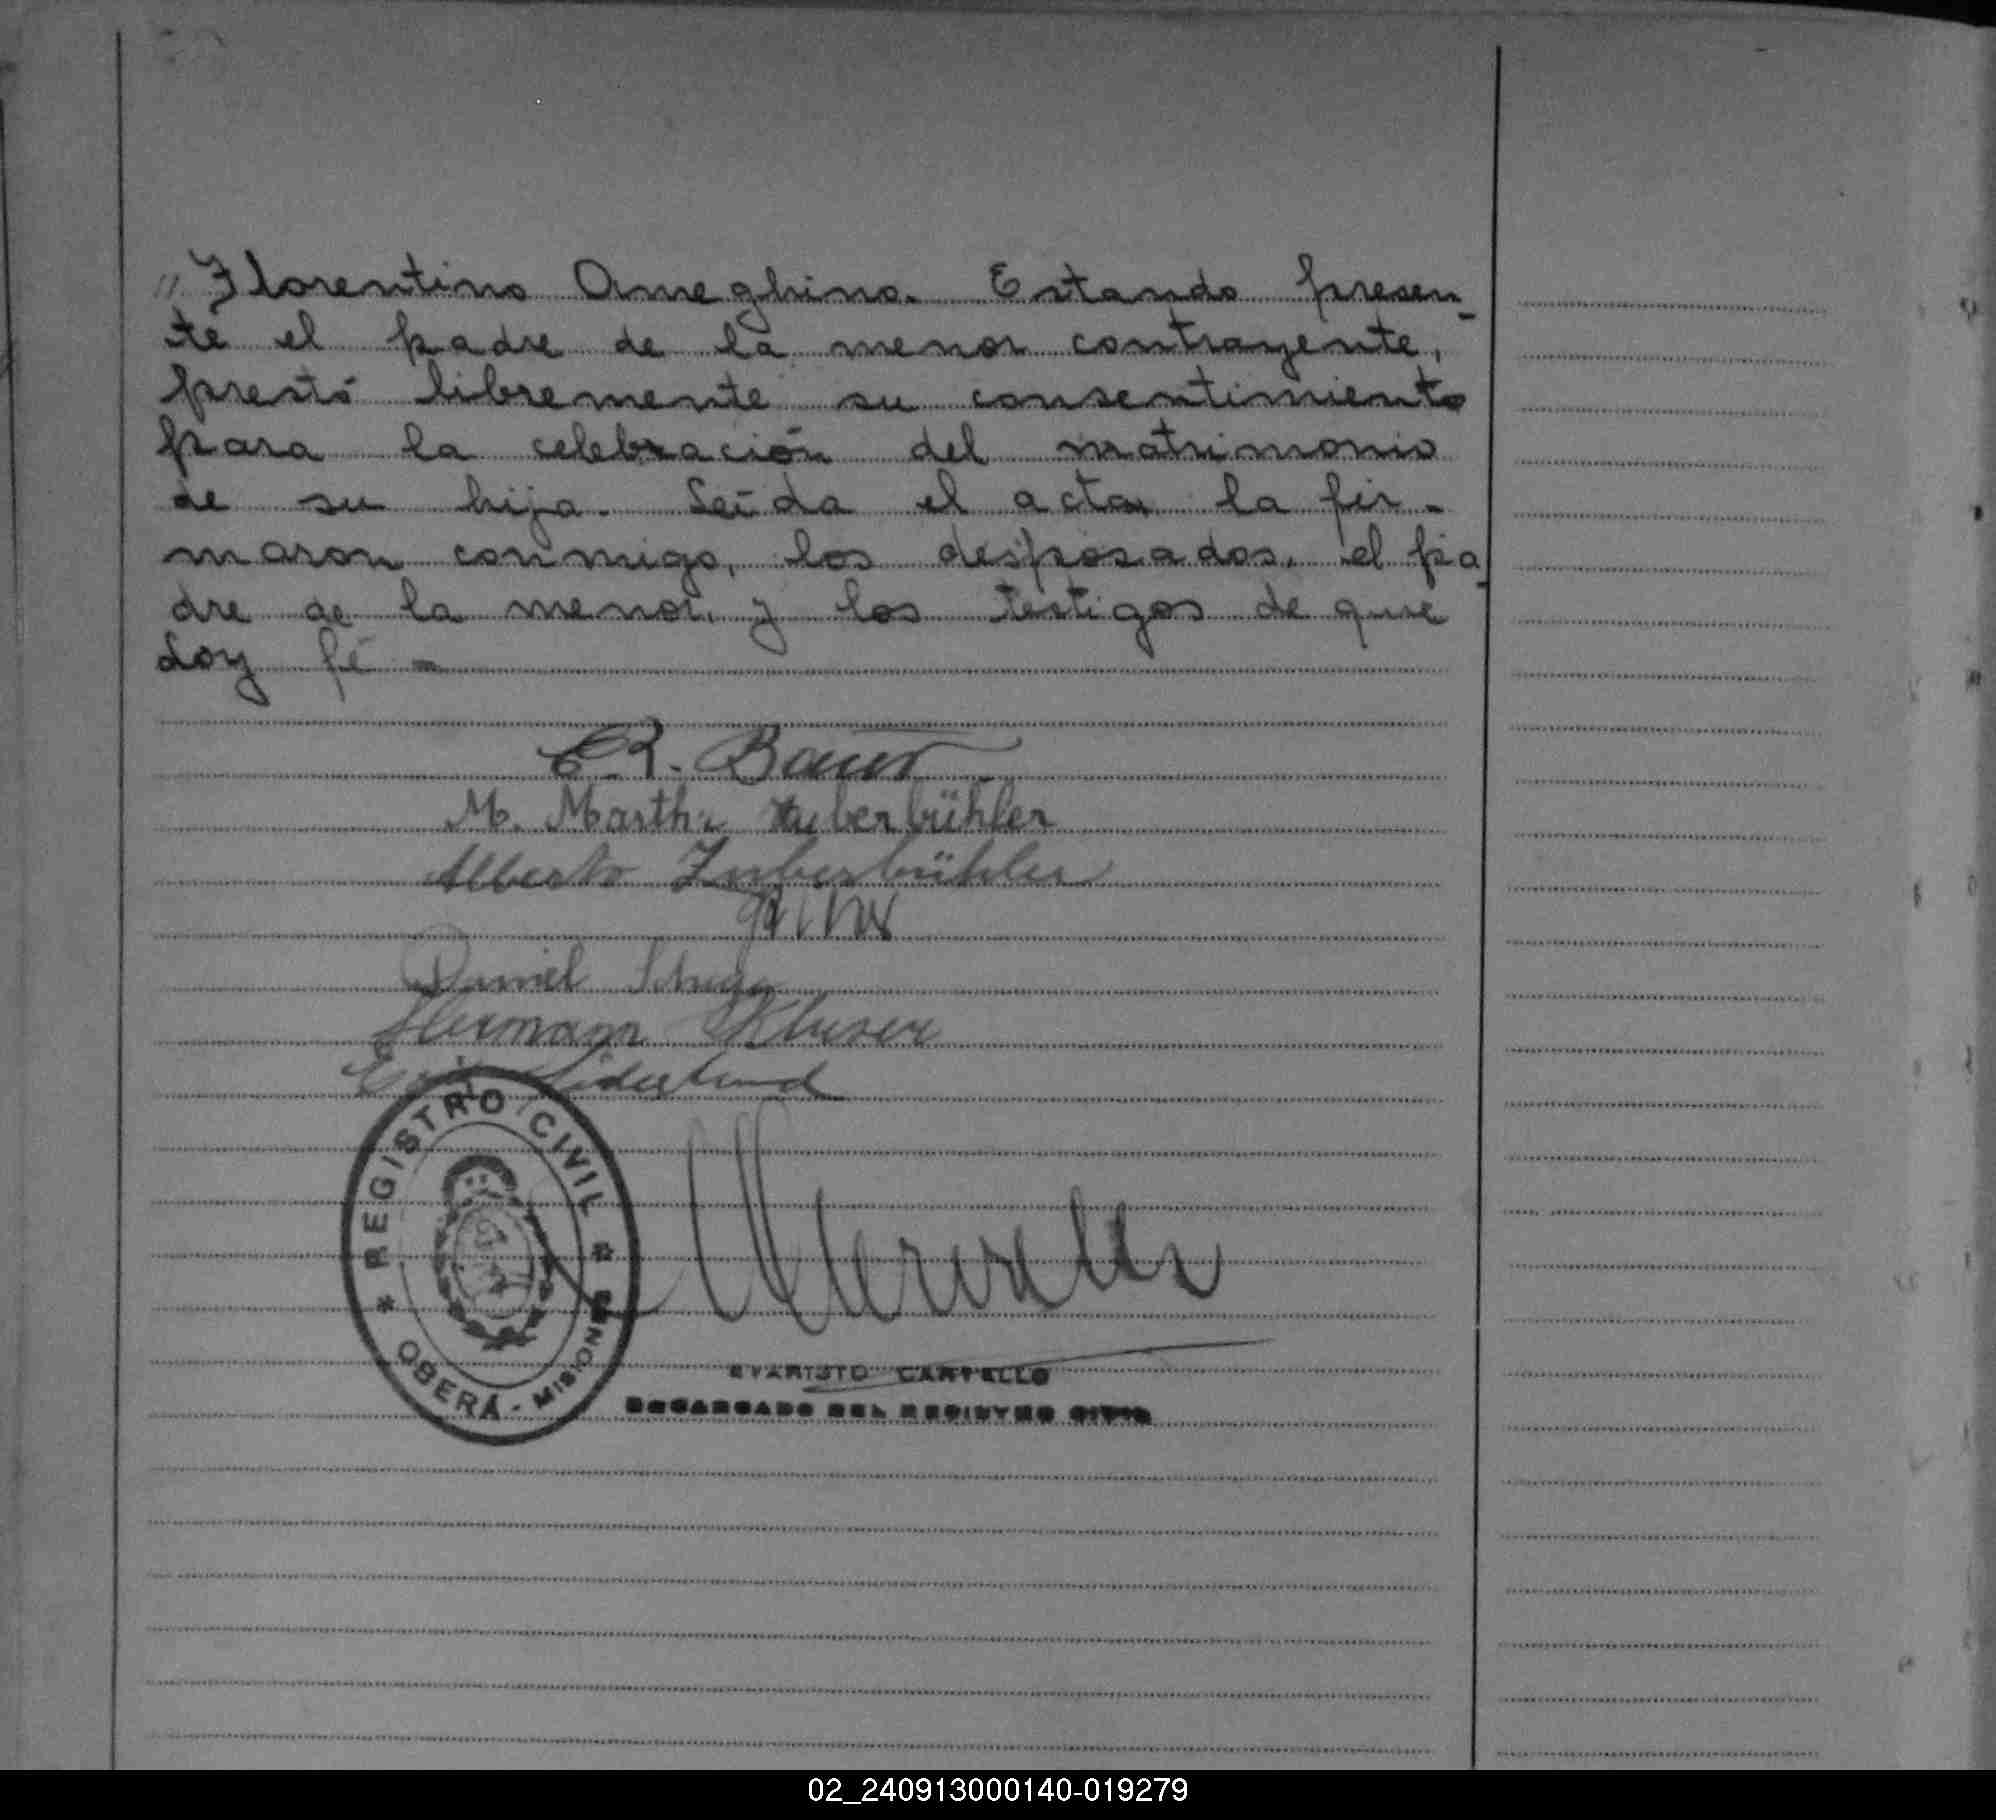 " Florentino Ameghino. Estando presen-
te el padre de la menor contrayente,
prestó libremente su consentimiento
para la celebración del matrimonio
de su hija. Leída el acta la fir-
maron conmigo, los desposados, el pa-
dre de la menor, y los testigos de que
doy fé -
Baur
M. Martha Zuberbühler
Alberto Zuberbühler
Daniel
Hermann
REGISTRO CIVIL
OBERÁ - MISIONES
EVARISTO CARVELLO
ENCARGADO DEL REGISTRO CIVIL
02_240913000140-019279